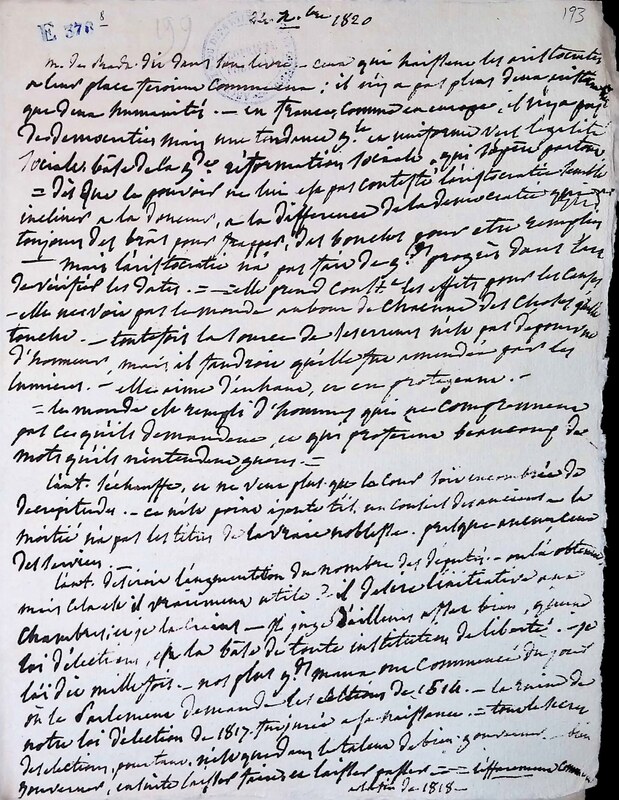 E 378
8
199
Xbre 1820
193
m. de Pradt dit dans son livre – ceux qui haissent les aristocrates
a leur place feroient comme eux ; il n'y a pas plus deux aristocraties
que deux humanités. – en france, comme en europe, il n'y a pas
de democratie mais une tendance gle et uniforme vers l'egalité
sociale, base de la gde reformation sociale, qui s'opère partout
= dès que le pouvoir ne lui est pas contesté l'aristocratie semble
incliner a la douceur, a la difference de la democratie
toujours des bras pour frapper, des bouches pour etre remplies
— mais l'aristocratie n'a pas fait de gds progrès dans l'art
de vérifier les dates. = = elle prend les effets pour les causes
– elle ne voit pas le monde au bout de chacune des choses qu'elle
touche. – toutefois la source de ses erreurs n'est pas depourvue
d'honneur, mais il faudroit qu'elle fut amendée par les
lumieres. – elle aime d'en haut, et en protegeant. –
= le monde est rempli d'hommes qui ne comprennent
pas ce qu'ils demandent, et qui proferent beaucoup de
mots qu'ils n'entendent gueres. =
l'aut. s'échauffe, et ne veut plus que la cour soit encombrée de
decrepitudes. – ce n'est point ajoute t'il un conseil des anciens – la
moitié n'a pas les titres de la vraie noblesse. presque aucun ceux
des services.
l'aut. desiroit l'augmentation du nombre des deputés. – on l'a obtenue
mais cela est il vraiment utile ? il desire l'initiative aux
chambres, et je la crains – il juge d'ailleurs assez bien, qu'une
loi d'élections, est la base de toute institution de liberté. – je
l'ai dit mille fois. – nos plus gds maux ont commencé du jour
où le Parlement demanda les elections de 1614. – la ruine de
notre loi d'élection de 1817 fut jurée a sa naissance. = tout le secret
des elections, pourtant, n'est que dans le talent de bien gouverner. – bien
gouverner, ensuite laisser faire et laisser passer ==
de 1818 –